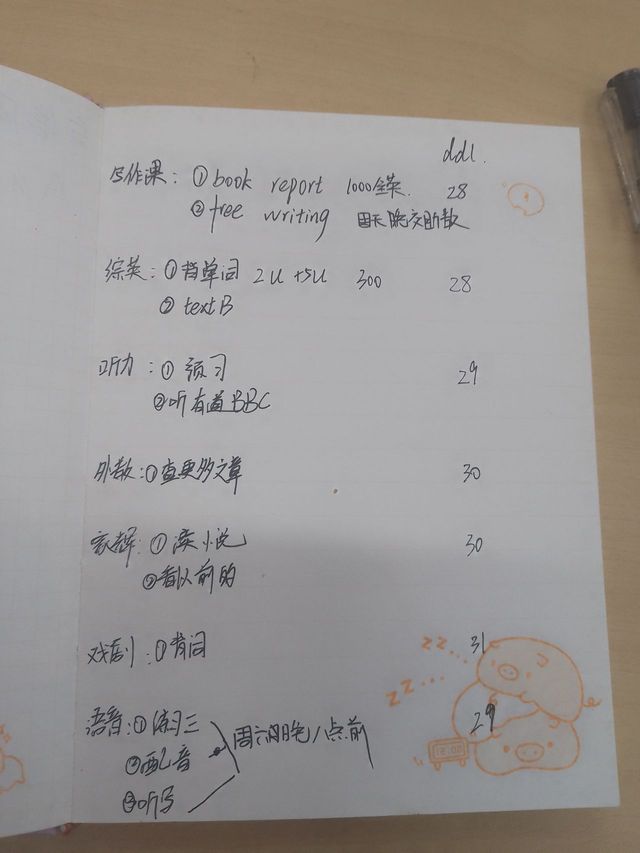 ddl.
写作课：① book report 1000 28
② free writing 周天晚交
综英：①背单词 2U+5U 300 28
② text B
听力：① 预习 29
②听有道BBC
外教：①查更多文章 30
① 读小说 30
②看以前的
戏剧：①背词 31
语音：①练习三 29
②配音 周六晚八点前
③听写
12:00
ZZ...
ZZ...